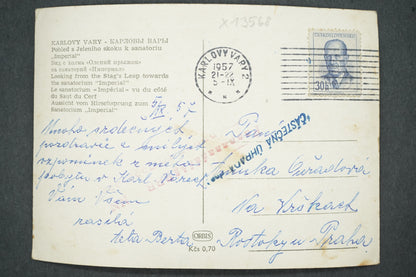 X13568
KARLOVY VARY - КАРЛОВЫ ВАРЫ
Pohled z Jeleního skoku k sanatoriu
„Imperial"
Вид с холма «Олений прыжок»
на санаторий «Империал»
Looking from the Stag's Leap towards
the sanatorium "Imperial"
Le sanatorium «Impérial» vu du côté
du Saut du Cerf
Aussicht vom Hirschsprung zum
Sanatorium „Imperial"
57
Mnoho srdečných
pozdravů a
vzpomínek z mého
pobytu v Karl. Varech
Vám Všem
zasílá
teta Berta
ORBIS
Kčs 0,70
KARLOVY VARY 2
1957
21-22
5-IX
ČESKOSLOVENSKO
30h
ČÁSTEČNÁ ÚHRADA
Na Vrškách
Postoky u Praha